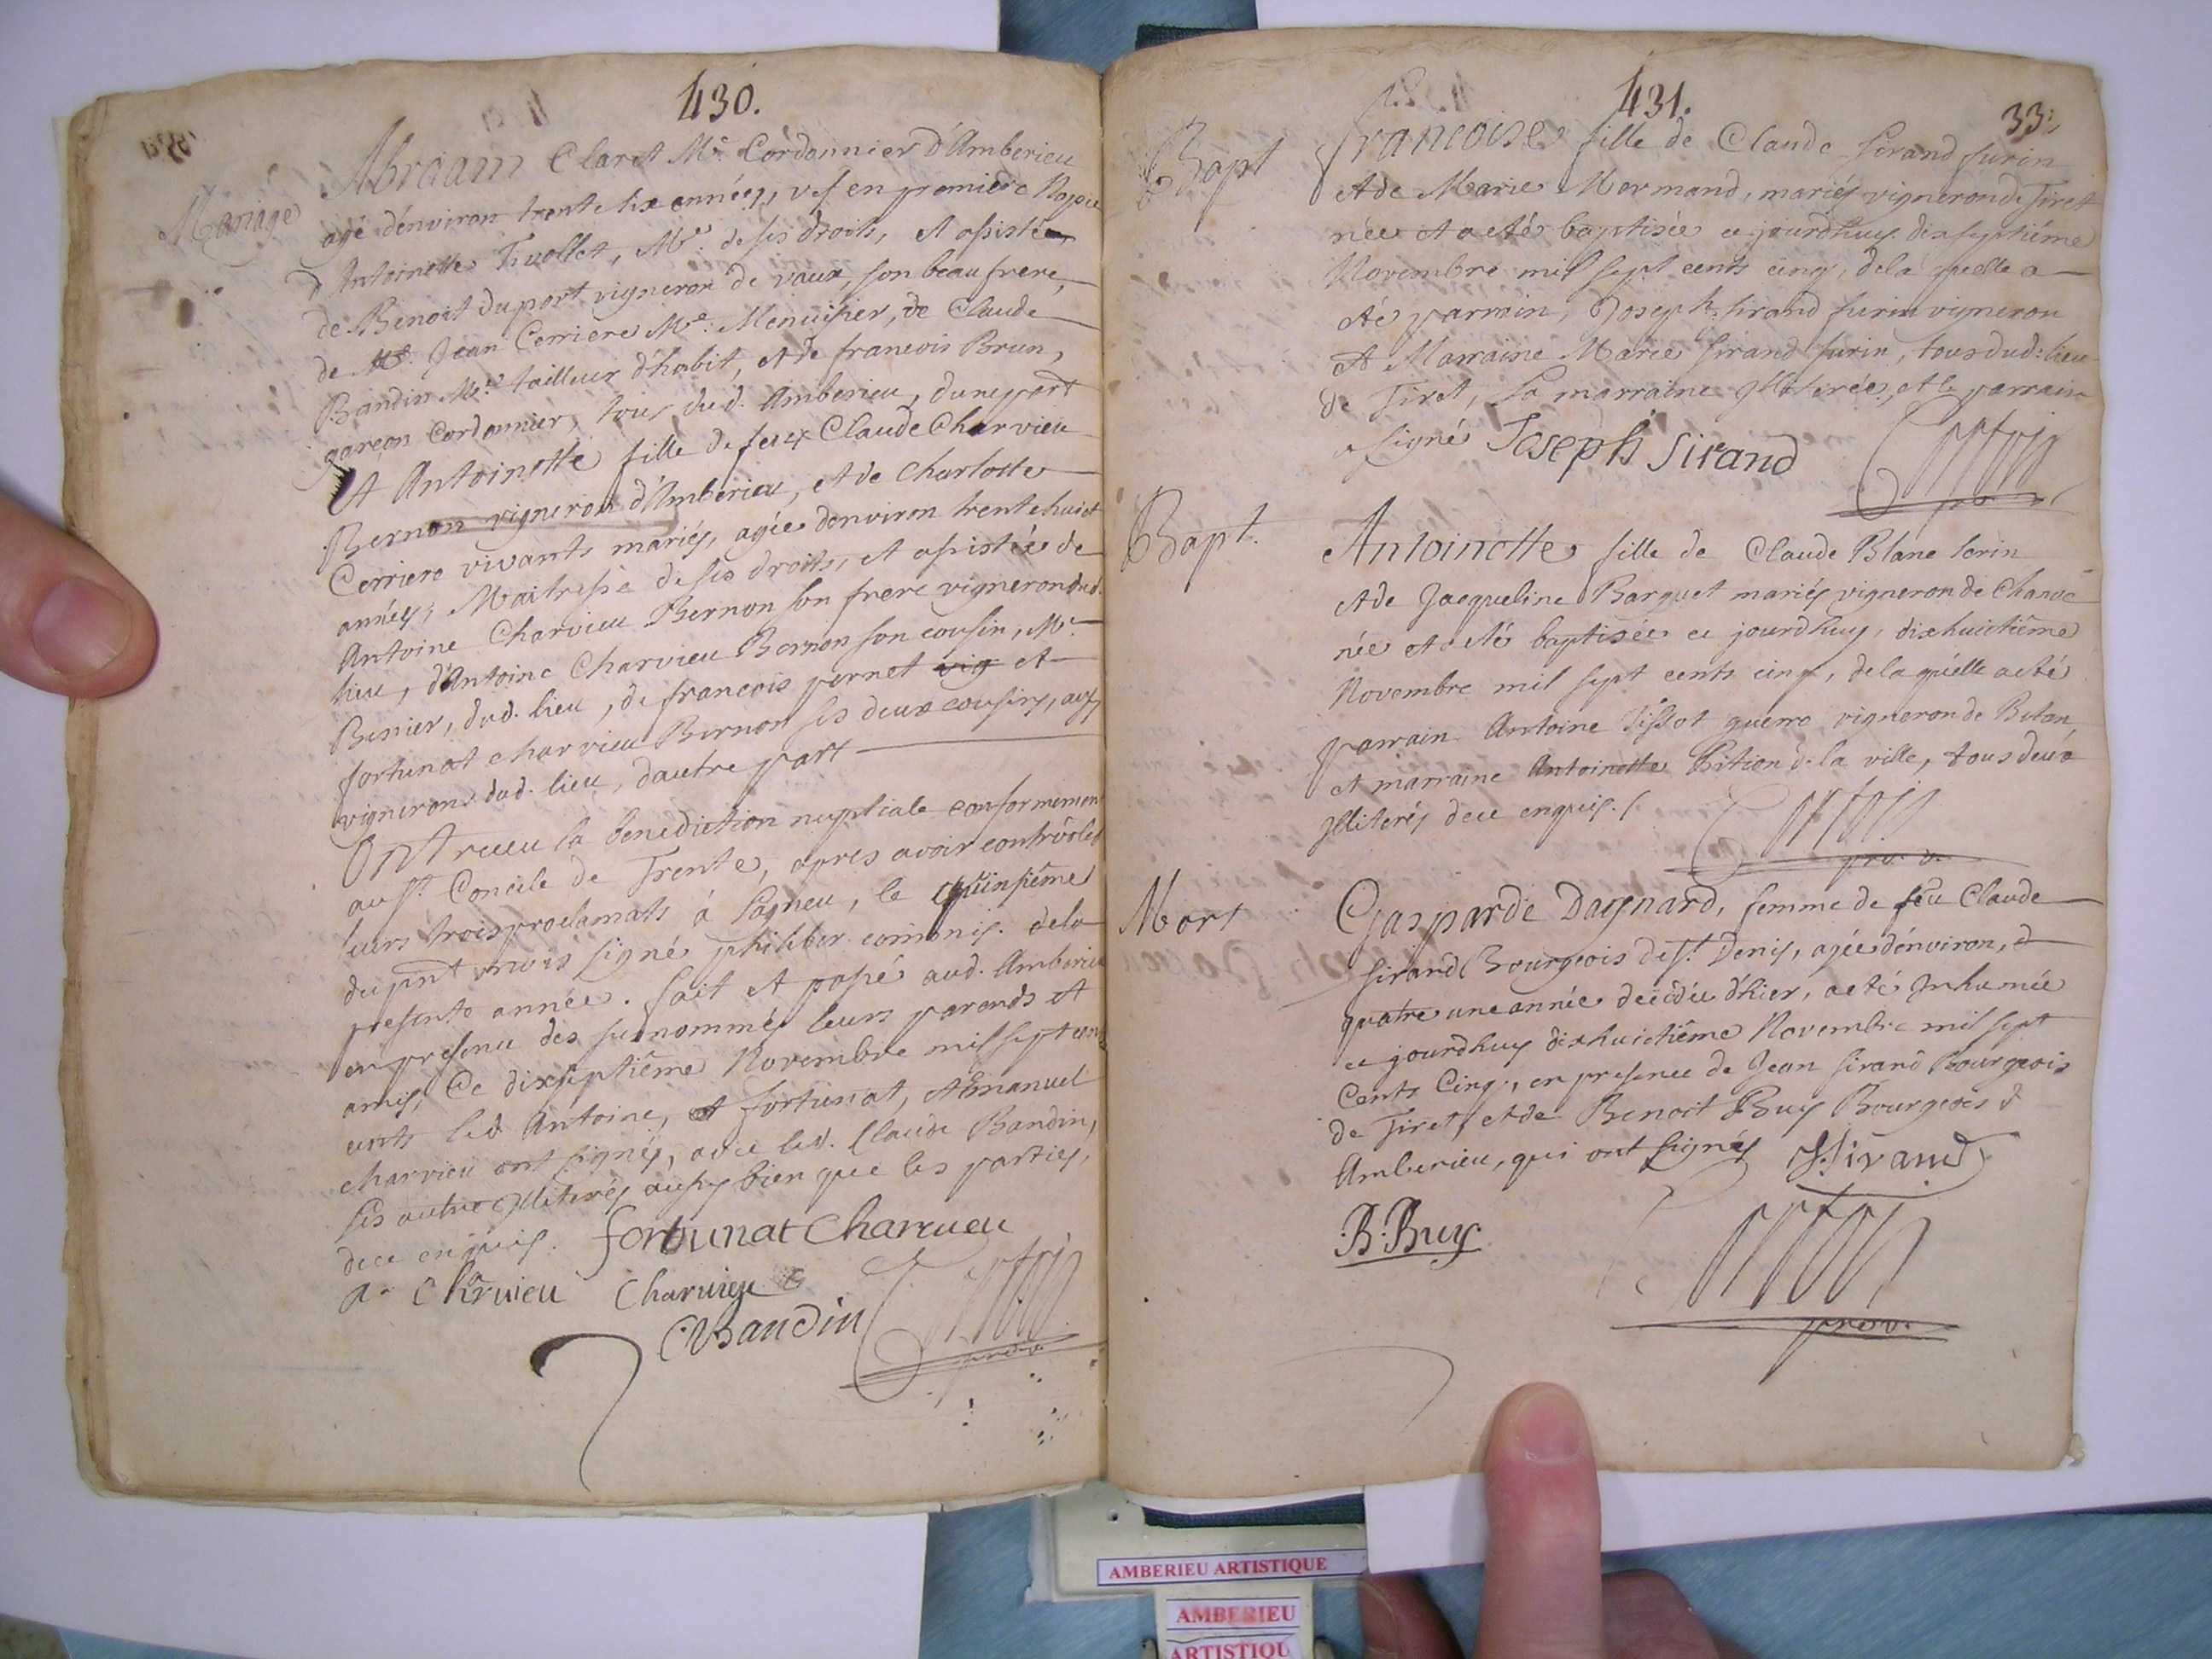 430.
Mariage
Abraam Claret Me. Cordonnier d'Amberieu
agé d'environ trente six années, vef en premiere Nopce
d'Antoinette Tivollet, Me. de ses droits, et assisté
de Benoit duport vigneron de vaux, son beau frere,
de Jean Cerriere Me. Menuisier, de Claude
Bandin Me. tailleur d'habit, et de francois Brun,
garcon Cordonnier, tous dud. Amberieu, dune part
Et Antoinette fille de feux Claude Charvieu
Bernon vigneron d'Amberieu, et de Charlotte
Cerriere vivants mariés, agée denviron trente huict
années, Maitresse de ses droits, et assistée de
Antoine Charvieu Bernon son frere vigneron dud.
lieu, d'Antoine Charvieu Bernon son cousin, Me.
dud. lieu, de francois pernet vig et
fortunat charvieu Bernon ses deux cousins, aussy
vignerons dud. lieu, dautre part
Ont receu la benediction nuptiale conformement
au st. Concile de Trente, apres avoir controlés
leurs trois proclamats à Lagneu, le quinsiéme
du pnt mois signé philiber commis. dela
presente année. fait et passé aud. Amberieu
en presence des susnommés leurs parends et
amis, Ce dixseptiême Novembre mil sept cents
led. Antoine, et fortunat, et Emanuel
charvieu ont signés, avec led. Claude Bandin,
les autres Illiterés aussy bien que les parties,
de ce enquis. fortunat Charvieu
A. Chrvieu Charvieu
CBandin
prov.
431.
33
Bapt
francoise fille de Claude sirand furin
et de Marie Mormand, mariés vigneron de Tiret
née et a eté baptisée ce jourdhuy dixseptiéme
Novembre mil sept cents cinq, dela quelle a
eté parrain, Joseph sirand furin vigneron
et Marraine Marie sirand furin, tous dud: lieu
de Tiret, La marraine Illiterée, et le parrain
a signé Joseph Sirand
Bapt.
Antoinette fille de Claude Blanc
et de Jacqueline Barquet mariés vigneron de Chanve
née et a eté baptisée ce jourdhuy, dixhuictiême
Novembre mil sept cents cinq, dela quelle a eté
parrain Antoine Tissot guerre vigneron de
et marraine Antoinette de la ville, tous deux
Illiterés de ce enquis.
prov.
Mort
Gasparde Dagnard, femme de feu Claude
sirand Bourgeois de st. Denis, agée d'environ,
quatre une année decedée d'hier, a eté Inhumée
ce jourdhuy dixhuictiême Novembre mil sept
Cents Cinq, en presence de Jean sirand Bourgeois
de Tiret, et de Benoit Buy Bourgeois d
Amberieu, qui ont signés J. Sirand
B. Buy
prov.
AMBERIEU ARTISTIQUE
AMBERIEU
ARTISTIQU